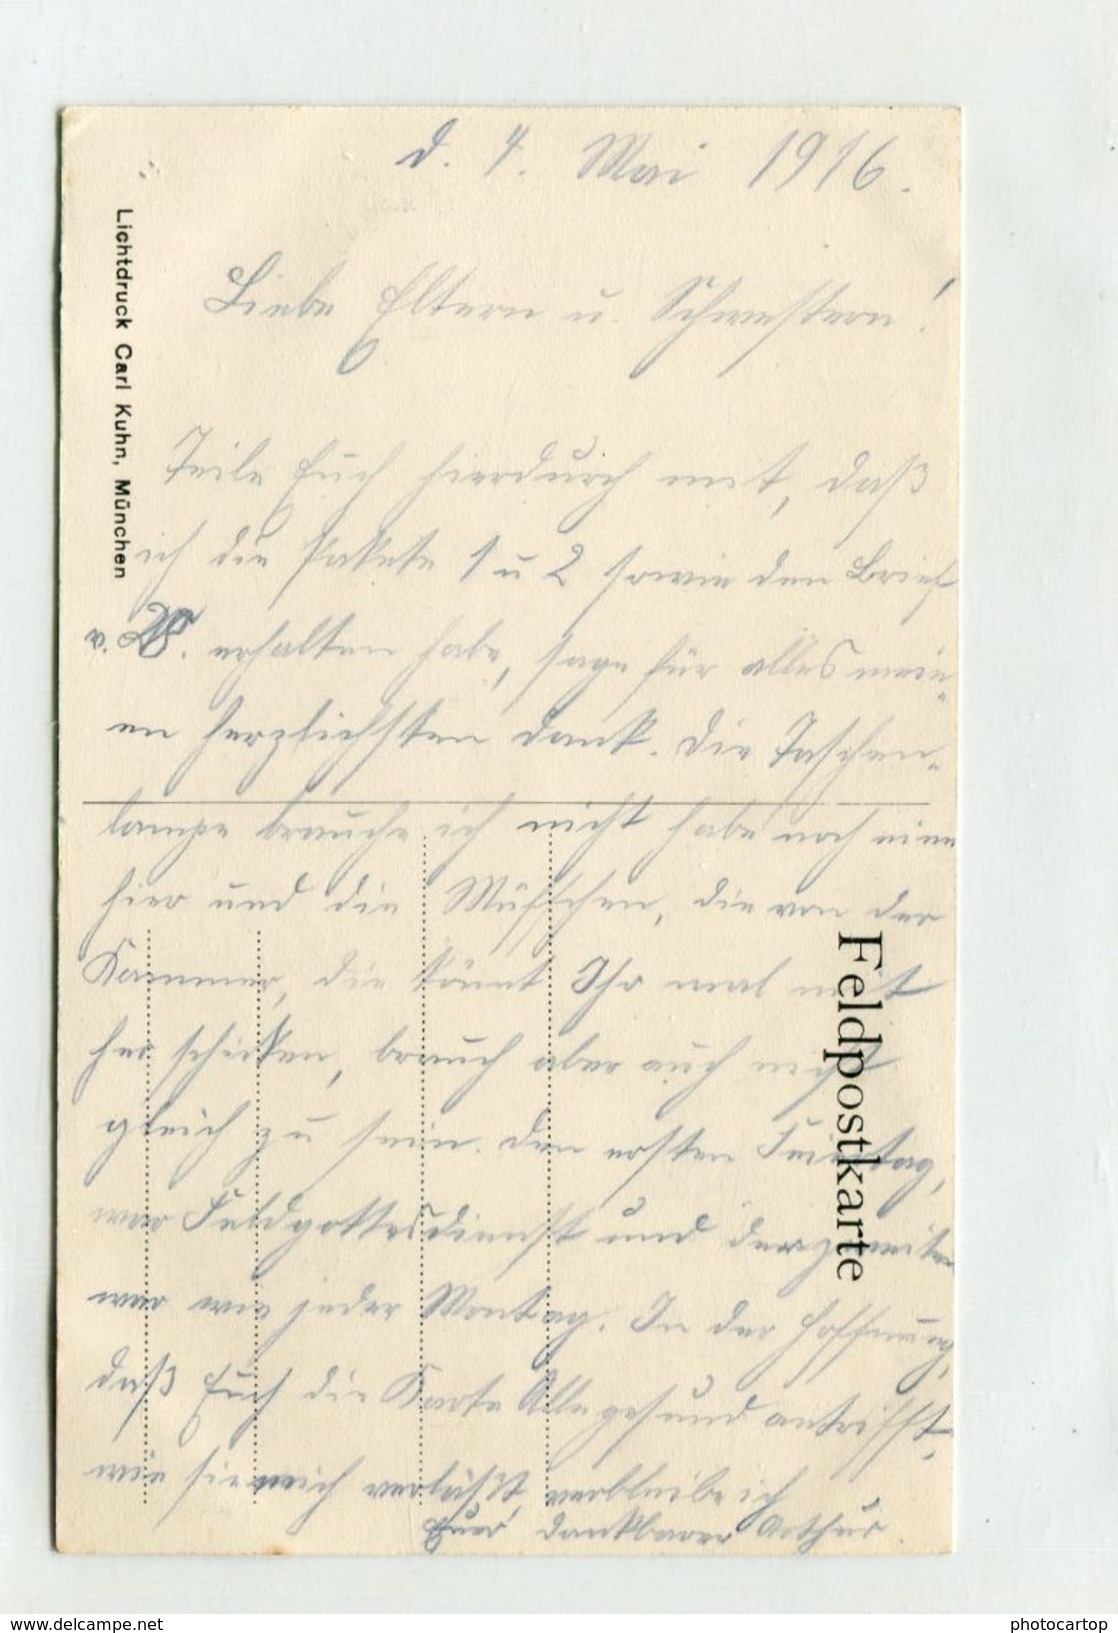 d. 7. Mai 1916.
Liebe Eltern u. Schwestern!
Teile Euch hierdurch mit, daß
ich die Pakete 1 u 2 sowie den Brief
v. W. erhalten habe, sage für alles mein-
en herzlichsten Dank. Die Taschen-
lampe brauche ich nicht habe noch eine
hier und die Müffchen, die von der
Kammer, die könnt Ihr mal mit
her schicken, brauch aber auch nicht
gleich zu sein. Den ersten Feiertag,
war Feldgottesdienst und der zweite
war wie jeder Montag. In der Hoffnung,
daß Euch die Karte Alle gesund antrifft,
wie sie mich verläßt, verbleibe ich
Euer dankbarer Arthur.
Lichtdruck Carl Kuhn, München
Feldpostkarte
www.delcampe.net
photocartop